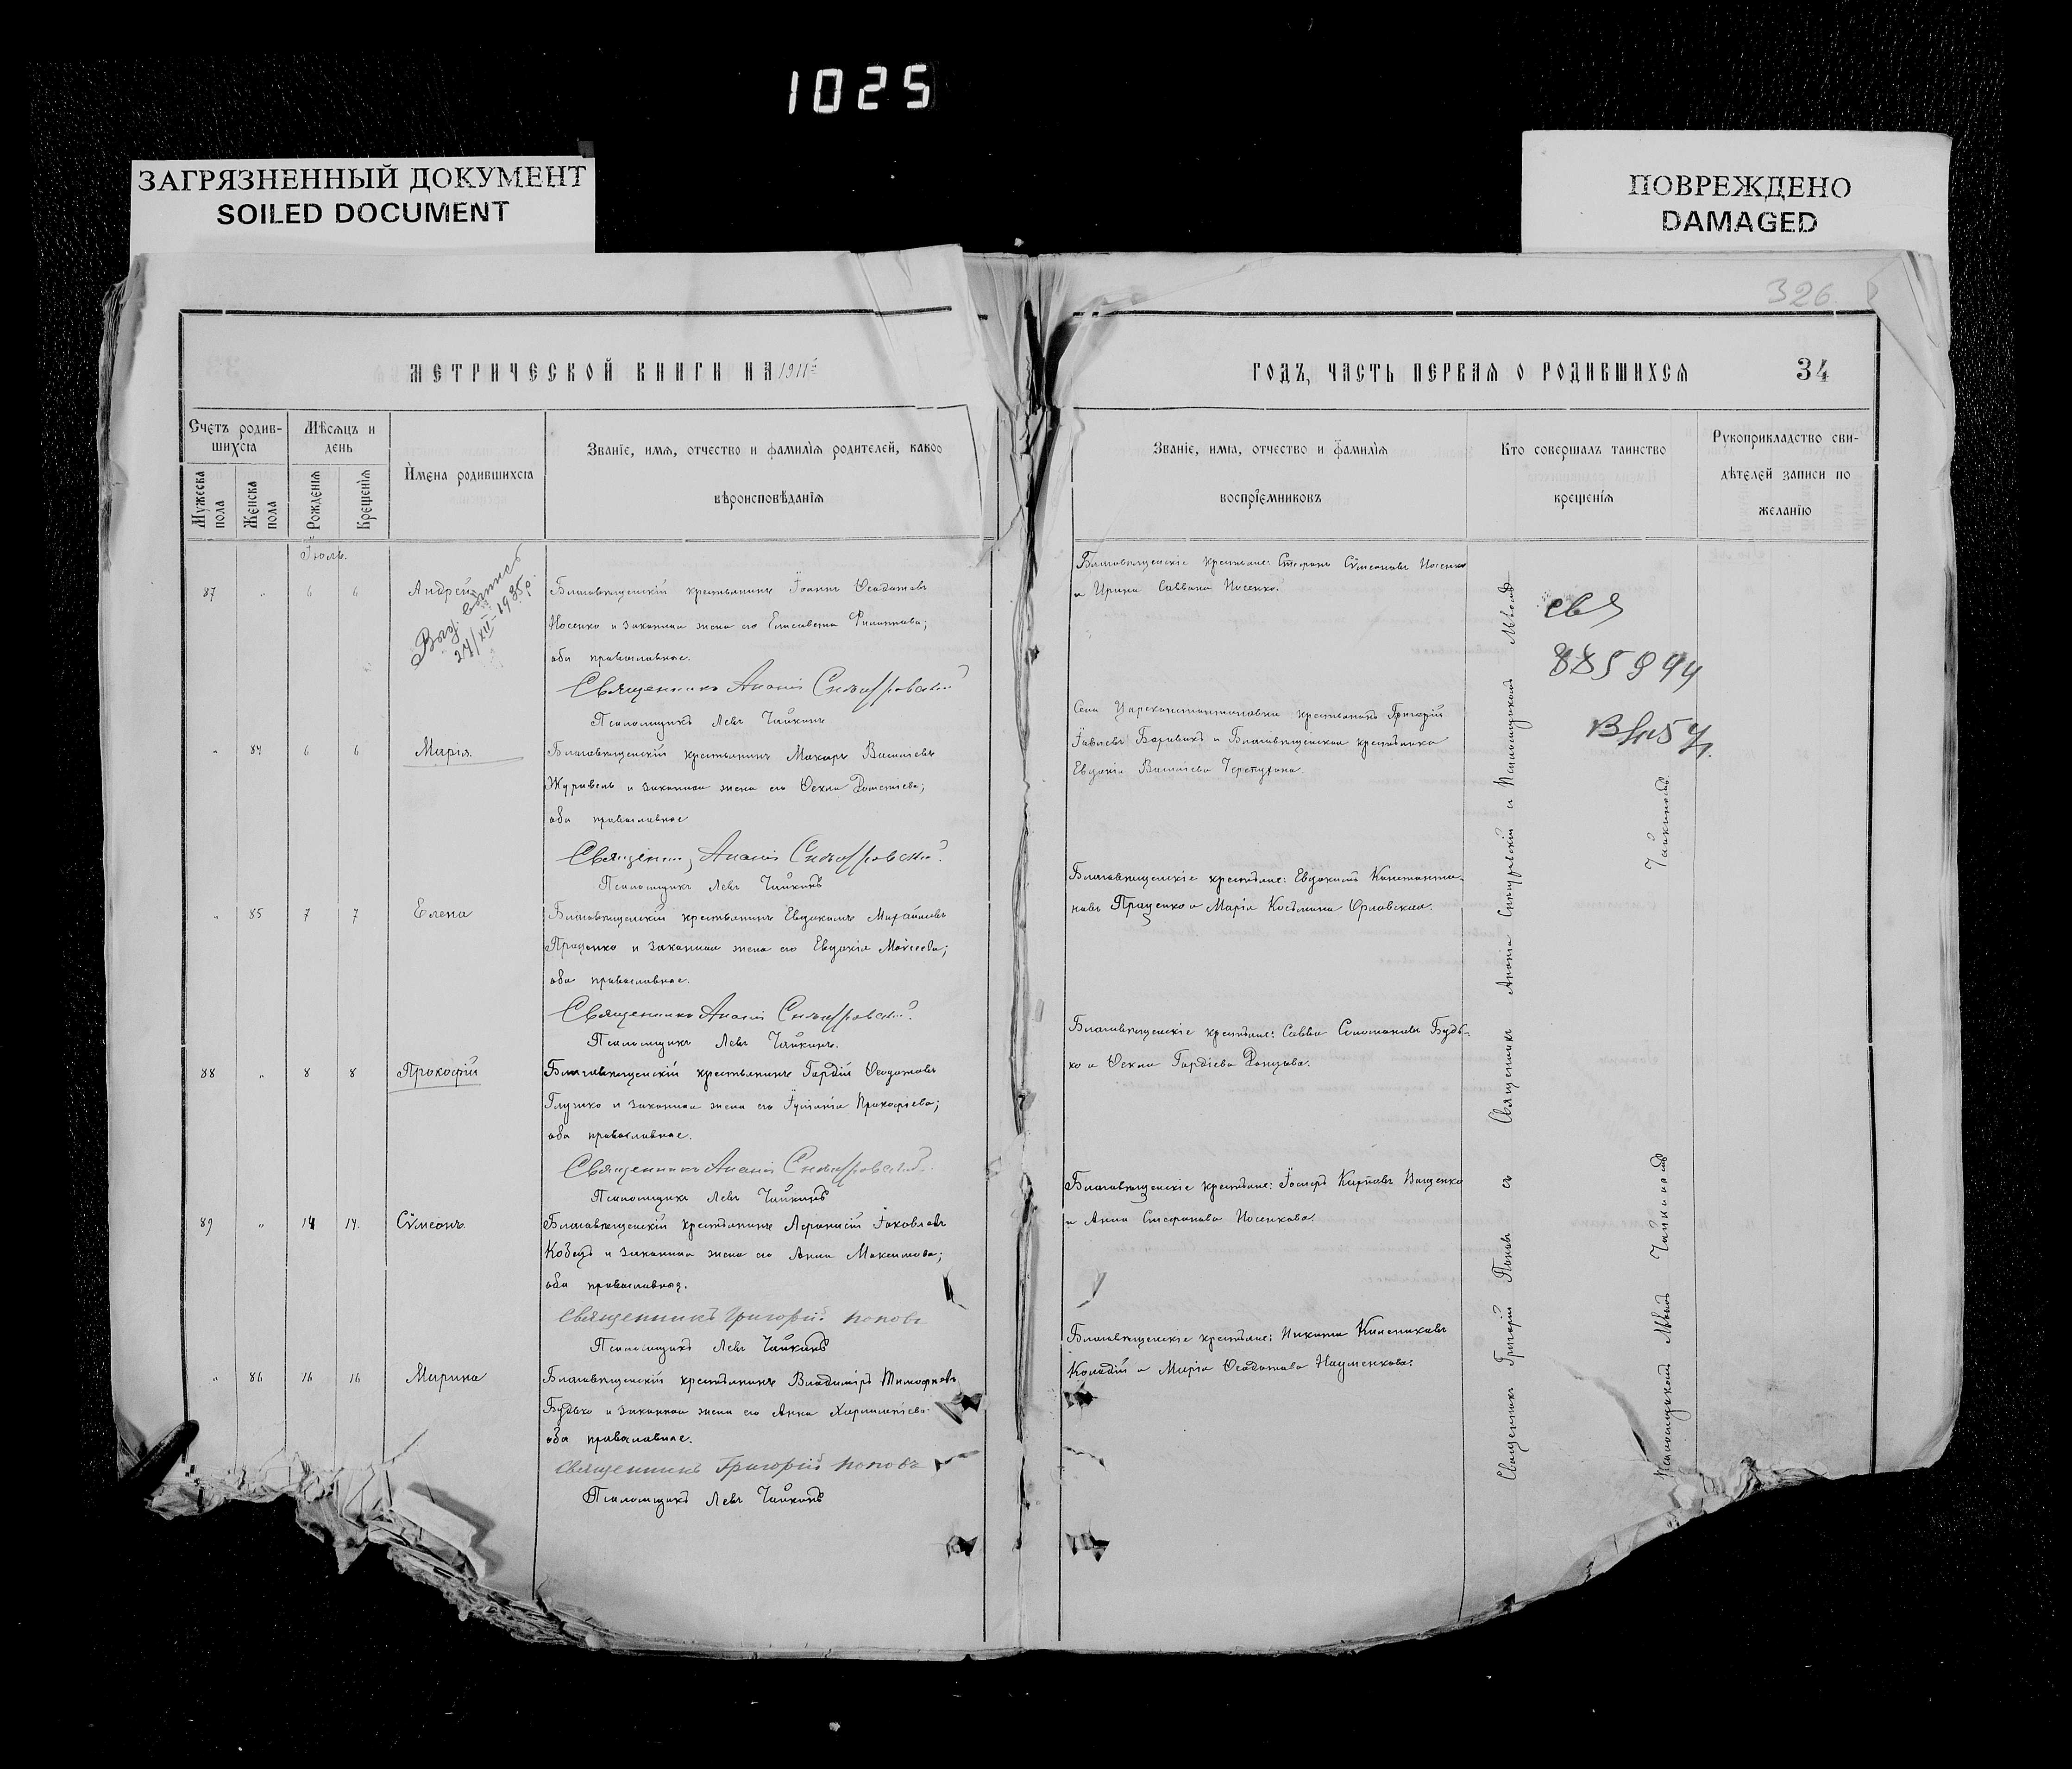 1025
ЗАГРЯЗНЕННЫЙ ДОКУМЕНТ
SOILED DOCUMENT
ПОВРЕЖДЕНО
DAMAGED
326
МЕТРИЧЕСКОЙ КНИГИ НА 1911й
ГОДЪ, ЧАСТЬ ПЕРВАЯ О РОДИВШИХСЯ
34
Счетъ родив-
шихся
Мужеска пола
Женска пола
Мѣсяцъ и
день
Рожденія
Крещенія
Имена родившихся
Званіе, имя, отчество и фамилія родителей, какого
вѣроисповѣданія
Званіе, имя, отчество и фамилія
воспріемниковъ
Кто совершалъ таинство
крещенія
Рукоприкладство сви-
дѣтелей записи по
желанію
Іюль.
87 " 6 6 Андрей
24/XII-1935р.
Благовѣщенскій крестьянинъ Іоаннъ Ѳеодотовъ
Носенко и законная жена его Елисавета Филиппова;
оба православные.
Священникъ Ананій Снѣгуровскій
Псаломщикъ Левъ Чайкинъ
Благовѣщенскіе крестьяне: Стефанъ Сѵмеоновъ Носенко
и Ирина Саввина Носенко.
" 84 6 6 Марія.
Благовѣщенскій крестьянинъ Макаръ Васильевъ
Журавель и законная жена его Ѳекла Дометіева;
оба православные
Священникъ Ананій Снѣгуровскій.
Псаломщикъ Левъ Чайкинъ
Села Цареконстантиновки крестьянинъ Григорій
и Благовѣщенская крестьянка
Евдокія Васильева
" 85 7 7 Елена
Благовѣщенскій крестьянинъ Евдокимъ Михайловъ
Проценко и законная жена его Евдокія Моисеева;
оба православные.
Священникъ Ананій Снѣгуровскій.
Псаломщикъ Левъ Чайкинъ.
Благовѣщенскіе крестьяне: Евдокимъ Константи-
новъ Проценко и Марія Косьмина Орловская.
88 " 8 8 Прокофій
Благовѣщенскій крестьянинъ Гордій Ѳеодотовъ
Глушко и законная жена его Іуліанія Прокофьева;
оба православные.
Священникъ Ананій Снѣгуровскій.
Псаломщикъ Левъ Чайкинъ
Благовѣщенскіе крестьяне: Савва Соломоновъ Будь-
ко и Ѳекла Гордіева Донцова.
89 " 14 14. Сѵмеонъ.
Благовѣщенскій крестьянинъ Аѳанасій Іаковлевъ
Кобецъ и законная жена его Анна Максимова;
оба православные.
Священникъ Григорій Поповъ
Псаломщикъ Левъ Чайкинъ
Благовѣщенскіе крестьяне: Іосифъ Карповъ Ищенко
и Анна Стефанова Носенкова.
" 86 16 16 Марина
Благовѣщенскій крестьянинъ Владиміръ Тимофеевъ
Будько и законная жена его Анна Харлампіева
оба православные.
Священникъ Григорій Поповъ
Псаломщикъ Левъ Чайкинъ
Благовѣщенскіе крестьяне: Никита
Коладій и Марія Ѳеодотова Науменкова.
Священникъ Ананій Снѣгуровскій и Псаломщикомъ Львомъ
Чайкинымъ.
Священникъ Григорій Поповъ съ
Псаломщикомъ Львомъ Чайкинымъ